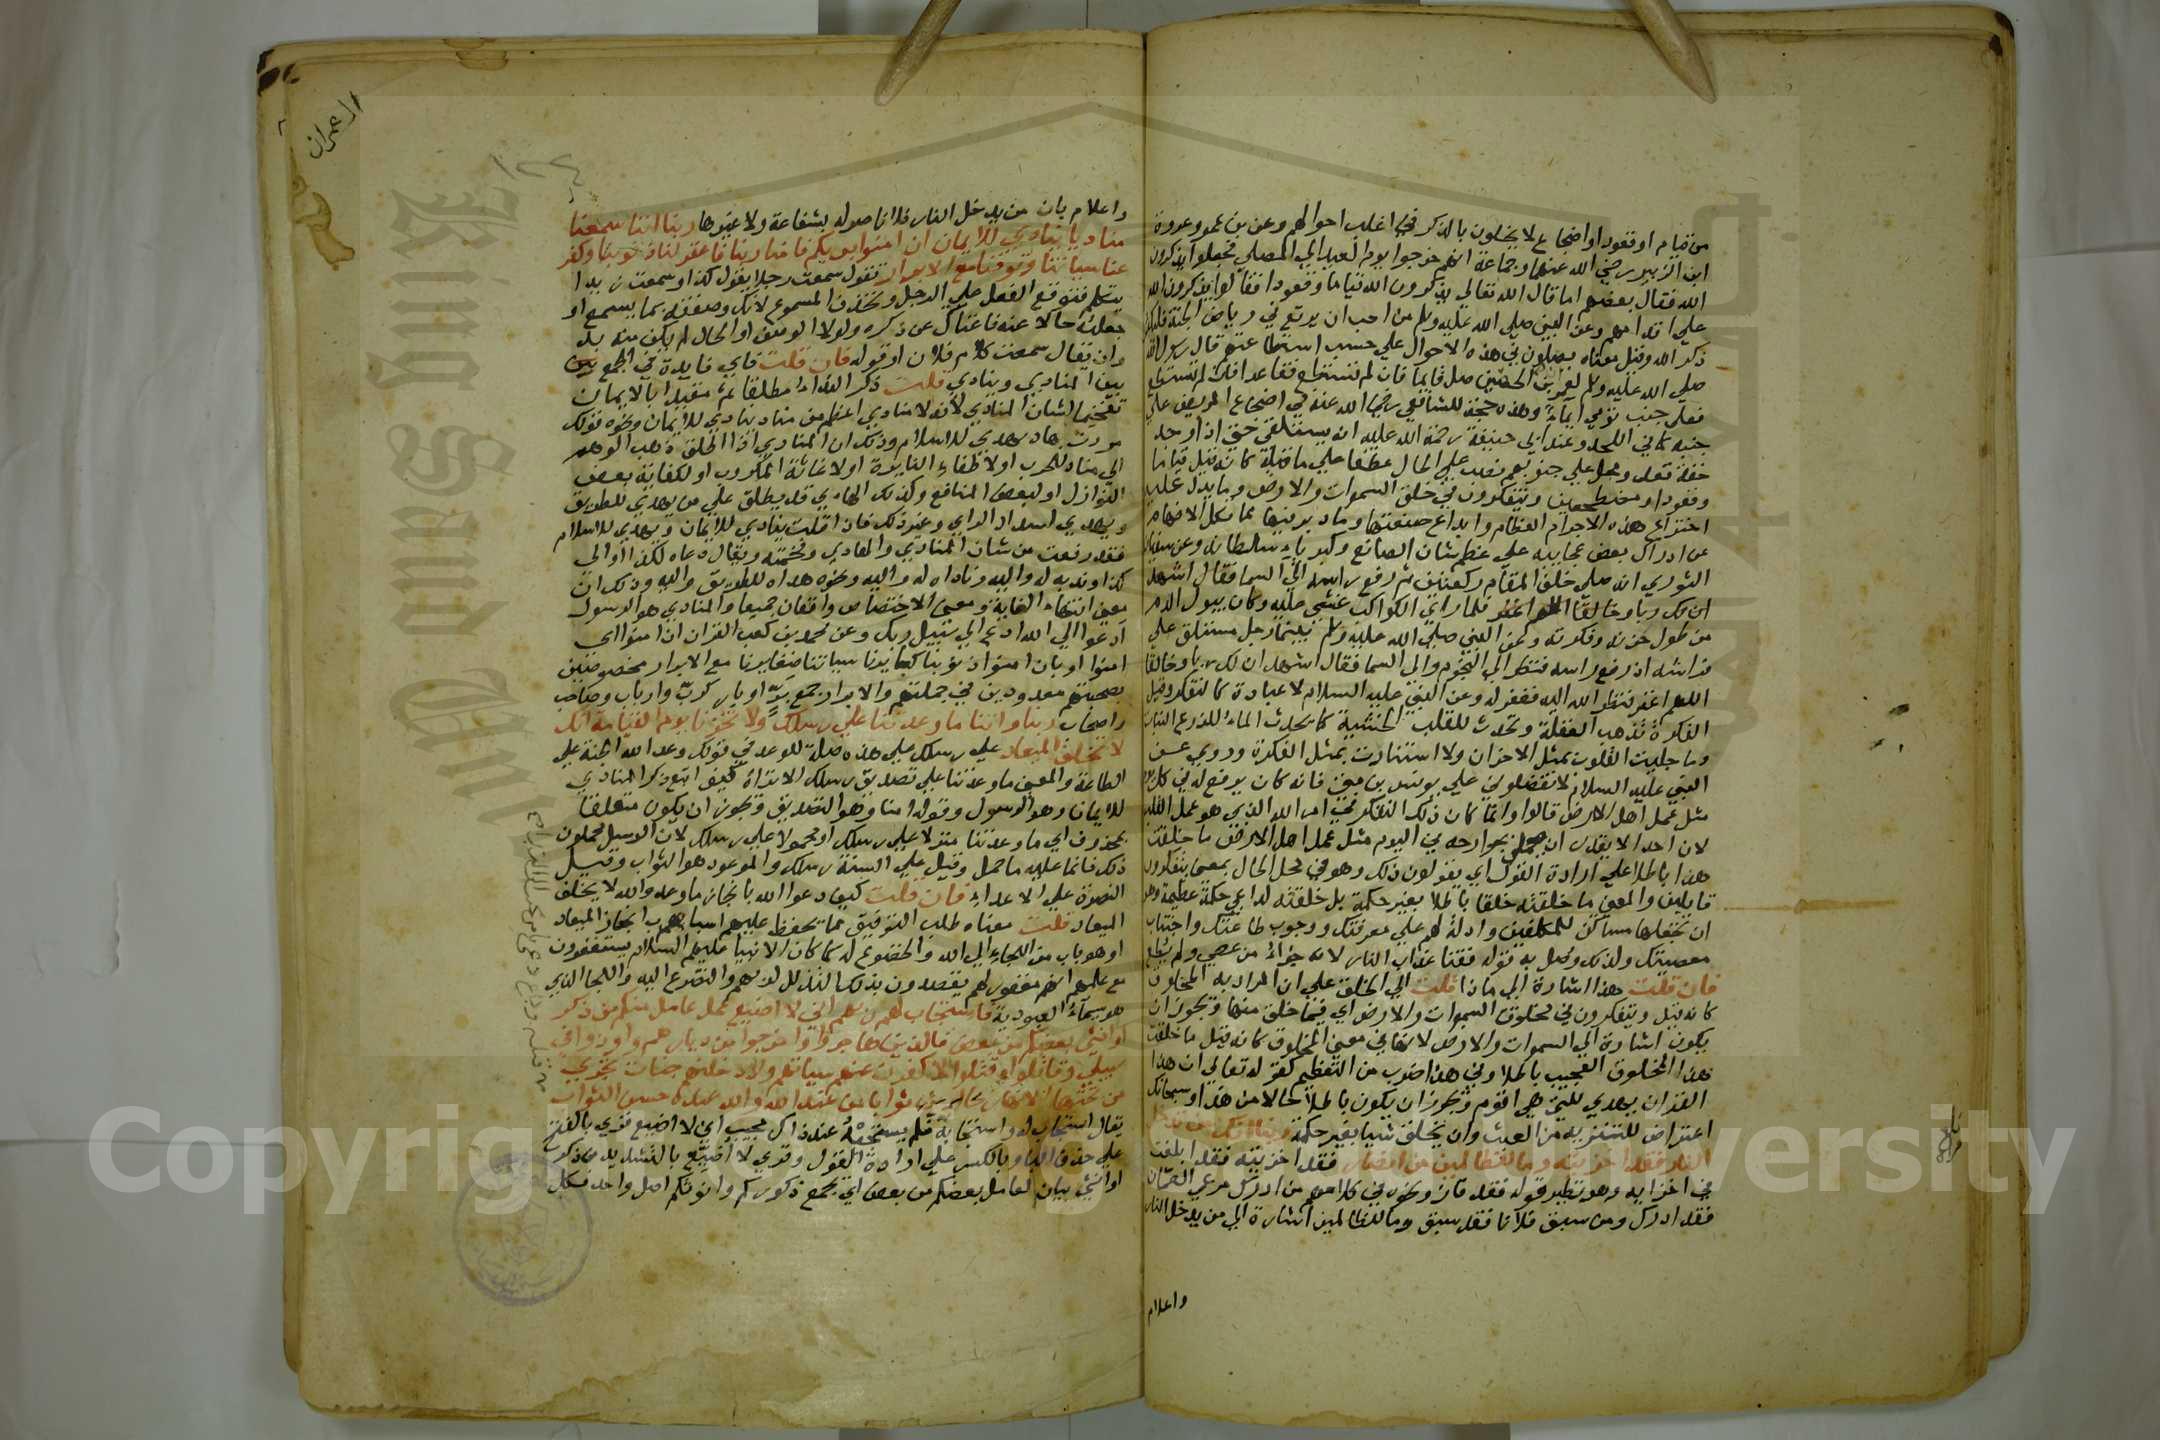 من قيام او قعود او اضجاع لا يخلون بالذكر في اغلب احوالهم وعن بن عمر وعروة
ابن الزبير رضي الله عنهما وجماعة انهم خرجوا يوم العيد الي المصلي فجعلوا يذكرون
الله فقال بعضهم اما قال الله تعالي يذكرون الله قياما وقعودا فقاموا يذكرون الله
علي اقدامهم وعن النبي صلي الله عليه وسلم من احب ان يرتع في رياض الجنة فليكثر
ذكر الله وقيل معناه يصلون في هذه الاحوال علي حسب استطاعتهم قال رسول الله
صلي الله عليه وسلم لعمران بن الحصين صل قايما فان لم تستطع فقاعدا فان لم تستطع
فعلي جنب تومي ايماء وهذه حجة للشافعي رضي الله عنه في اضجاع المريض علي
جنبه كما في اللحد وعند ابي حنيفة رحمة الله عليه انه يستلقي حتي اذا وجد
خفة قعد ومحل علي جنوبهم نصب علي الحال عطفا علي ما قبله كانه قيل قياما
وقعودا ومضطجعين ويتفكرون في خلق السموات والارض وما يدل عليه
اختراع هذه الاجرام العظام وابداع صنعتها وما دبر فيها مما تكل الافهام
عن ادراك بعض عجايبه علي عظم شان الصانع وكبرياء سلطانه وعن سفيان
الثوري انه صلي خلف المقام ركعتين ثم رفع راسه الي السما فقال اشهد
ان لك ربا وخالقا اللهم اغفر فلما راي الكواكب غشي عليه وكان يبول الدم
من طول حزنه وفكرته وعن النبي صلي الله عليه وسلم بينما رجل مستلق علي
فراشه اذ رفع راسه فنظر الي النجوم والي السما فقال اشهد ان لك ربا وخالقا
اللهم اغفر فنظر الله اليه فغفر له وعن النبي عليه السلام لا عبادة كالتفكر وقيل
الفكرة تذهب الغفلة وتحدث للقلب الخشية كما يحدث الماء للزرع النبات
وما جليت القلوب بمثل الاحزان ولا استنارت بمثل الفكرة وروي عن
النبي عليه السلام لا تفضلوني علي يونس بن متي فانه كان يرفع له في كل يوم
مثل عمل اهل الارض قالوا وانما كان ذلك التفكر في امر الله الذي هو عمل القلب
لان احدا لا يقدر ان يعمل بجوارحه في اليوم مثل عمل اهل الارض ما خلقت
هذا باطلا علي ارادة القول اي يقولون ذلك وهو في محل الحال بمعني يتفكرون
قايلين والمعني ما خلقته خلقا باطلا بغير حكمة بل خلقته لداعي حكمة عظيمة وهو
ان تجعلها مساكن للمكلفين وادلة لهم علي معرفتك ووجوب طاعتك واجتناب
معصيتك ولذلك وصل به قوله فقنا عذاب النار لانه جزاء من عصي ولم يطع
فان قلت هذا اشارة الي ماذا قلت الي الخلق علي ان المراد به المخلوق
كانه قيل ويتفكرون في مخلوق السموات والارض اي فيما خلق منها ويجوز ان
يكون اشارة الي السموات والارض لانها في معني المخلوق كانه قيل ما خلقت
هذا المخلوق العجيب باطلا وفي هذا ضرب من التعظيم كقوله تعالي ان هذا
القران يهدي للتي هي اقوم ويجوز ان يكون باطلا حالا من هذا وسبحانك
اعتراض للتنزيه من العبث وان يخلق شيا بغير حكمة ربنا انك من تدخل
النار فقد اخزيته وما للظالمين من انصار فقد اخزيته فقد ابلغت
في اخزايه وهو نظير قوله فقد فاز ونحوه في كلامهم من ادرك مرعي الصمان
فقد ادرك ومن سبق فلانا فقد سبق وما للظالمين اشارة الي من يدخل النار
واعلام
ال عمران
١٢٤
واعلام بان من يدخل النار فلا ناصر له بشفاعة ولا غيرها ربنا اننا سمعنا
مناديا ينادي للايمان ان امنوا بربكم فامنا ربنا فاغفر لنا ذنوبنا وكفر
عنا سياتنا وتوفنا مع الابرار تقول سمعت رجلا يقول كذا وسمعت زيدا
يتكلم فتوقع الفعل علي الرجل وتحذف المسموع لانك وصفته بما يسمع او
جعلته حالا عنه فاغناك عن ذكره ولولا الوصف او الحال لم يكن منه بد
وان يقال سمعت كلام فلان او قوله فان قلت فاي فايدة في الجمع بين
بين المنادي وينادي قلت ذكر النداء مطلقا ثم مقيدا بالايمان
تفخيما لشان المنادي لانه لا منادي اعظم من مناد ينادي للايمان ونحوه قولك
مررت بهاد يهدي للاسلام وذلك ان المنادي اذا اطلق ذهب الوهم
الي مناد للحرب او لاطفاء النايرة او لاغاثة المكروب او لكفاية بعض
النوازل او لبعض المنافع وكذلك الهادي قد يطلق علي من يهدي للطريق
ويهدي لسداد الراي وغير ذلك فاذا قلت ينادي للايمان ويهدي للاسلام
فقد رفعت من شان المنادي والهادي وفخمته ويقال دعاه لكذا والي
كذا وندبه له واليه وناداه له واليه ونحوه هداه للطريق واليه وذلك ان
معني انتهاء الغاية ومعني الاختصاص واقعان جميعا والمنادي هو الرسول
ادعوا الي الله ادع الي سبيل ربك وعن محمد بن كعب القران ان امنوا اي
امنوا او بان امنوا ذنوبنا كبايرنا سياتنا صغايرنا مع الابرار مخصوصين
بصحبتهم معدودين في جملتهم والابرار جمع بر او بار كرب وارباب وصاحب
واصحاب ربنا واتنا ما وعدتنا علي رسلك ولا تخزنا يوم القيامة انك
لا تخلف الميعاد علي رسلك علي هذه صلة للوعد في قولك وعد الله الجنة علي
الطاعة والمعني ما وعدتنا علي تصديق رسلك الا تراه كيف اتبع ذكر المنادي
للايمان وهو الرسول وقوله امنا وهو التصديق ويجوز ان يكون متعلقا
بمحذوف اي ما وعدتنا منزلا علي رسلك او محمولا علي رسلك لان الرسل محملون
ذلك فانما عليه ما حمل وقيل علي السنة رسلك والموعود هو الثواب وقيل
النصرة علي الاعداء فان قلت كيف دعوا الله بانجاز ما وعد والله لا يخلف
الميعاد قلت معناه طلب التوفيق مما تحفظ عليهم اسباب انجاز الميعاد
او هو باب من اللجاء الي الله والخضوع له كما كان الانبيا عليهم السلام يستغفرون
مع علمهم انهم مغفور لهم يقصدون بذلك التذلل لربهم والتضرع اليه واللجا الذي
هو سيماء العبودية فاستجاب لهم ربهم اني لا اضيع عمل عامل منكم من ذكر
او انثي بعضكم من بعض فالذين هاجروا واخرجوا من ديارهم واوذوا في
سبيلي وقاتلوا وقتلوا لاكفرن عنهم سياتهم ولادخلنهم جنات تجري
من تحتها الانهار ثوابا من عند الله والله عنده حسن الثواب
يقال استجاب له واستجابه فلم يستجبه عند ذاك مجيب اني لا اضيع قري بالفتح
علي حذف البا وبالكسر علي ارادة القول وقري لا اضيع بالتشديد من ذكر
او انثي بيان لعامل بعضكم من بعض اي يجمع ذكوركم وانوثكم اصل واحد فكل
Copyrig
versity
King Saud Univ